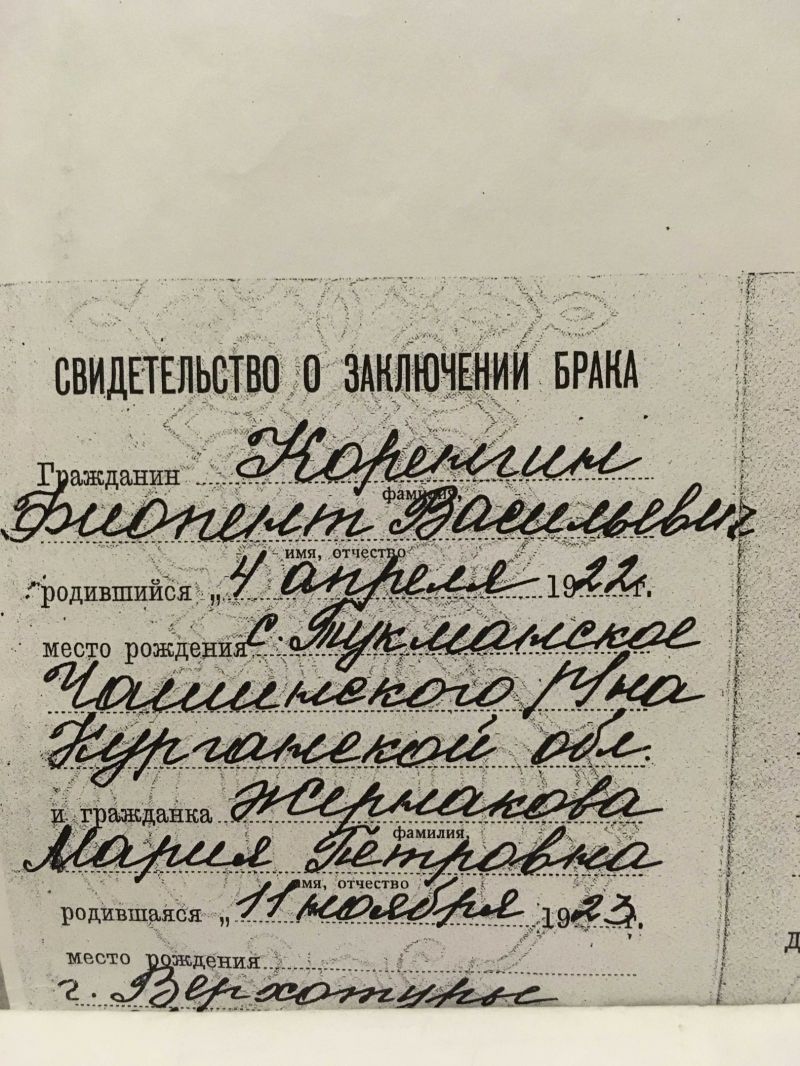 СВИДЕТЕЛЬСТВО О ЗАКЛЮЧЕНИИ БРАКА
Гражданин Коренгин
фамилия,
Васильевич
имя, отчество
родившийся „ 4 апреля 1922 г.
место рождения с. Тукманское
Чашинского р/на
Курганской обл.
и гражданка Жерлакова
фамилия,
Мария Петровна
имя, отчество
родившаяся „ 11 ноября 1923 г.
место рождения
г. Верхотурье
Д